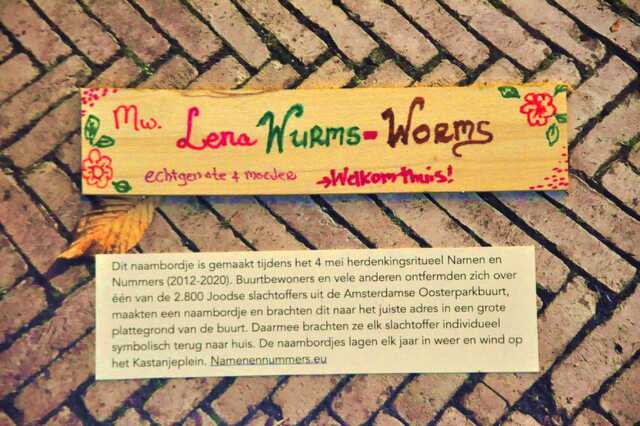 Mw. Lena Wurms = Worms
echtgenote + moeder →Welkom thuis!
Dit naambordje is gemaakt tijdens het 4 mei herdenkingsritueel Namen en
Nummers (2012-2020). Buurtbewoners en vele anderen ontfermden zich over
één van de 2.800 Joodse slachtoffers uit de Amsterdamse Oosterparkbuurt,
maakten een naambordje en brachten dit naar het juiste adres in een grote
plattegrond van de buurt. Daarmee brachten ze elk slachtoffer individueel
symbolisch terug naar huis. De naambordjes lagen elk jaar in weer en wind op
het Kastanjeplein. Namenennummers.eu